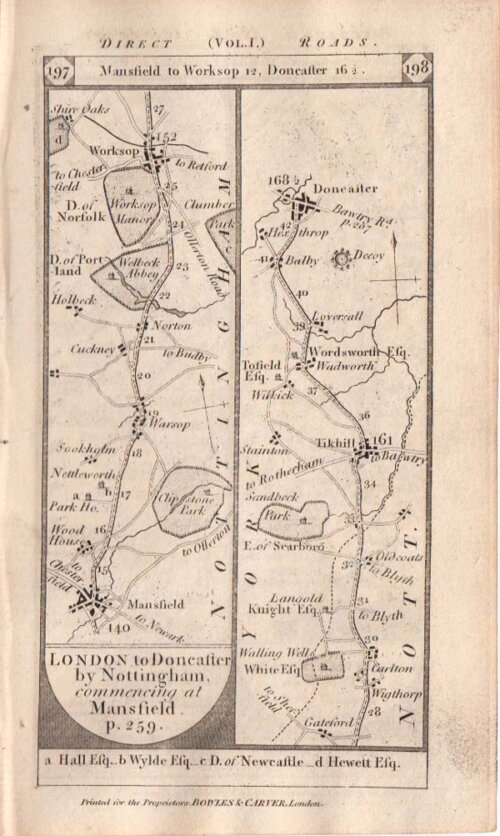 DIRECT (VOL.I.) ROADS.
197 Mansfield to Worksop 12, Doncaster 16½. 198
Shire Oaks
27
d
152
Worksop
to Retford
to Chester
field
25
D. of
Norfolk
Worksop
Manor
Clumber
Park
24
Ollerton Road
D. of Port
land
Welbeck
Abbey
23
22
Holbeck
Norton
21
Cuckney
to Budby
20
19
Warsop
18
Sookholm
Nettleworth
a b
17
Park Ho.
Clipstone
Park
16
Wood
House
to Ollerton
15
to Chester
field
Mansfield
140
to Newark
NOTTINGHAM
LONDON to Doncaster
by Nottingham,
commencing at
Mansfield.
p. 259.
168½
Doncaster
Bawtry Rd
p. 257
42
Hexthrop
41
Balby
Decoy
40
Loversall
39
Wordsworth Esq.
Wadworth
Tofield
Esq.
Wilsick
37
36
Stainton
Tikhill
161
to Bawtry
to Rotherham
34
Sandbeck
Park
33
E. of Scarboro
Oldcoats
32
to Blyth
Langold
Knight Esq.
31
to Blyth
30
Walling Wells
White Esq
Carlton
Wigthorp
28
to Shef
field
Gateford
YORK
NOTT.
a Hall Esq. b Wylde Esq. c D. of Newcastle d Hewett Esq.
Printed for the Proprietors BOWLES & CARVER, London.